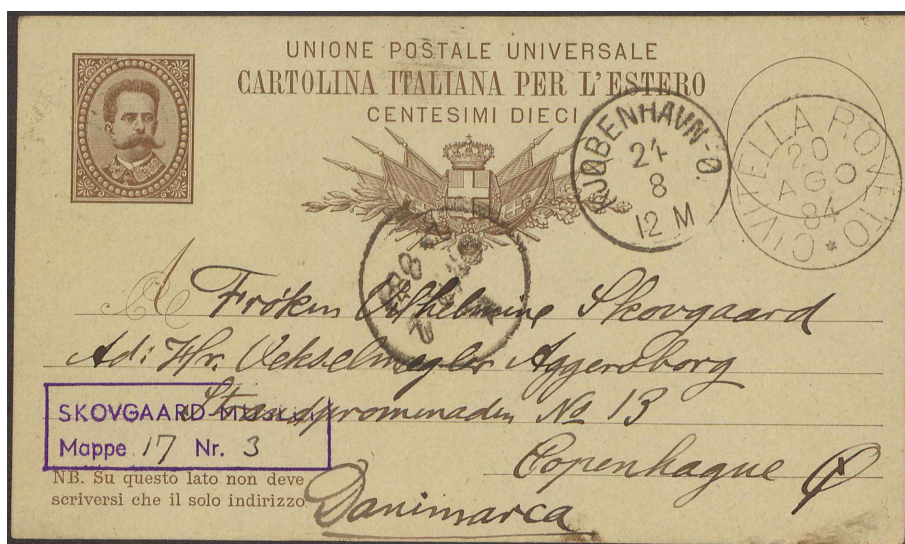 UNIONE POSTALE UNIVERSALE
CARTOLINA ITALIANA PER L'ESTERO
CENTESIMI DIECI
KJØBENHAVN-Ø.
24
8
12 M
CIVITELLA ROVETO
20
AGO
84
A Frøken Vilhelmine Skovgaard
Ad: Hr. Vekselmægler Aggersborg
Strandpromenaden No 13
SKOVGAARD-MUSEET
Mappe 17 Nr. 3
Copenhague Ø
NB. Su questo lato non deve
scriversi che il solo indirizzo.
Danimarca